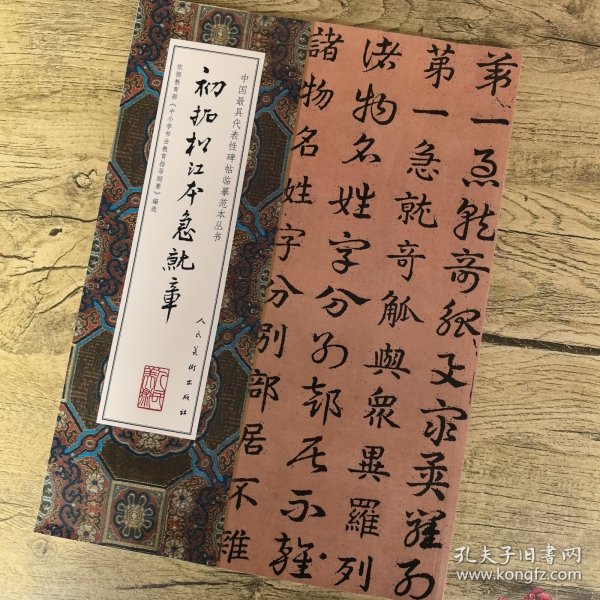 中国最具代表性碑帖临摹范本丛书
初拓松江本急就章
依据教育部《中小学书法教育指导纲要》编选
人民美術出版社
第一急就奇觚與衆異羅列
第一急就奇觚與衆異羅列
諸物名姓字分別部居不雜
諸物名姓字分別部居不雜
孔夫子旧书网
www.kongfz.com